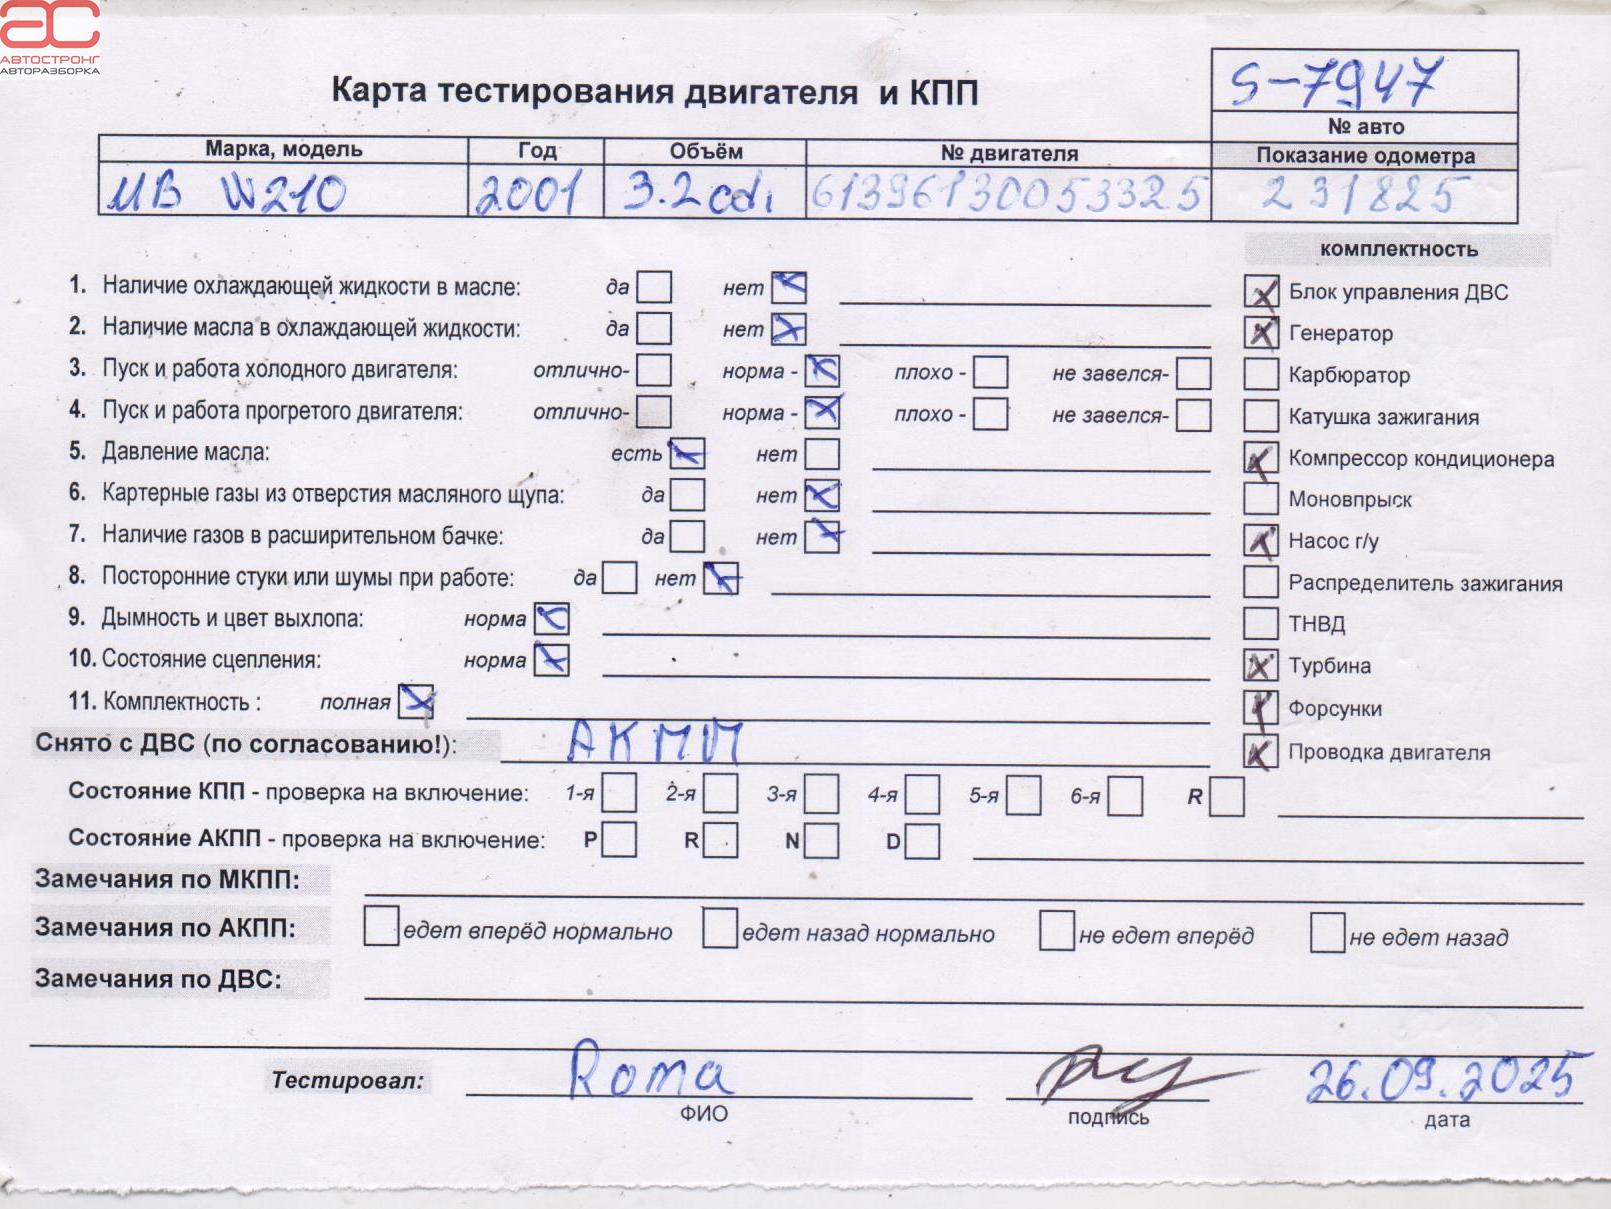 АС
АВТОСТРОНГ
АВТОРАЗБОРКА
Карта тестирования двигателя и КПП
S-7947
№ авто
Марка, модель Год Объём № двигателя Показание одометра
MB W210 2001 3.2 cdi 61396130053325 231825
комплектность
1. Наличие охлаждающей жидкости в масле: да нет
Блок управления ДВС
2. Наличие масла в охлаждающей жидкости: да нет
Генератор
3. Пуск и работа холодного двигателя: отлично- норма - плохо - не завелся-
Карбюратор
4. Пуск и работа прогретого двигателя: отлично- норма - плохо - не завелся-
Катушка зажигания
5. Давление масла: есть нет
Компрессор кондиционера
6. Картерные газы из отверстия масляного щупа: да нет
Моновпрыск
7. Наличие газов в расширительном бачке: да нет
Насос г/у
8. Посторонние стуки или шумы при работе: да нет
Распределитель зажигания
9. Дымность и цвет выхлопа: норма
ТНВД
10. Состояние сцепления: норма
Турбина
11. Комплектность : полная
Форсунки
Снято с ДВС (по согласованию!): АКПП
Проводка двигателя
Состояние КПП - проверка на включение: 1-я 2-я 3-я 4-я 5-я 6-я R
Состояние АКПП - проверка на включение: P R N D
Замечания по МКПП:
Замечания по АКПП: едет вперёд нормально едет назад нормально не едет вперёд не едет назад
Замечания по ДВС:
Тестировал: Roma 26.09.2025
ФИО подпись дата